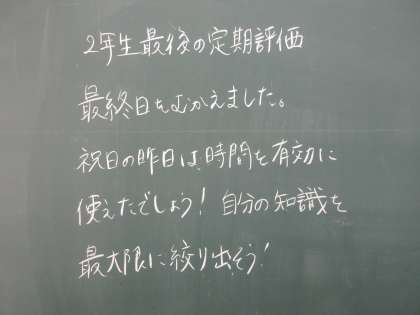 2年生最後の定期評価
最終日をむかえました。
祝日の昨日は、時間を有効に
使えたでしょう！自分の知識を
最大限に絞り出そう！